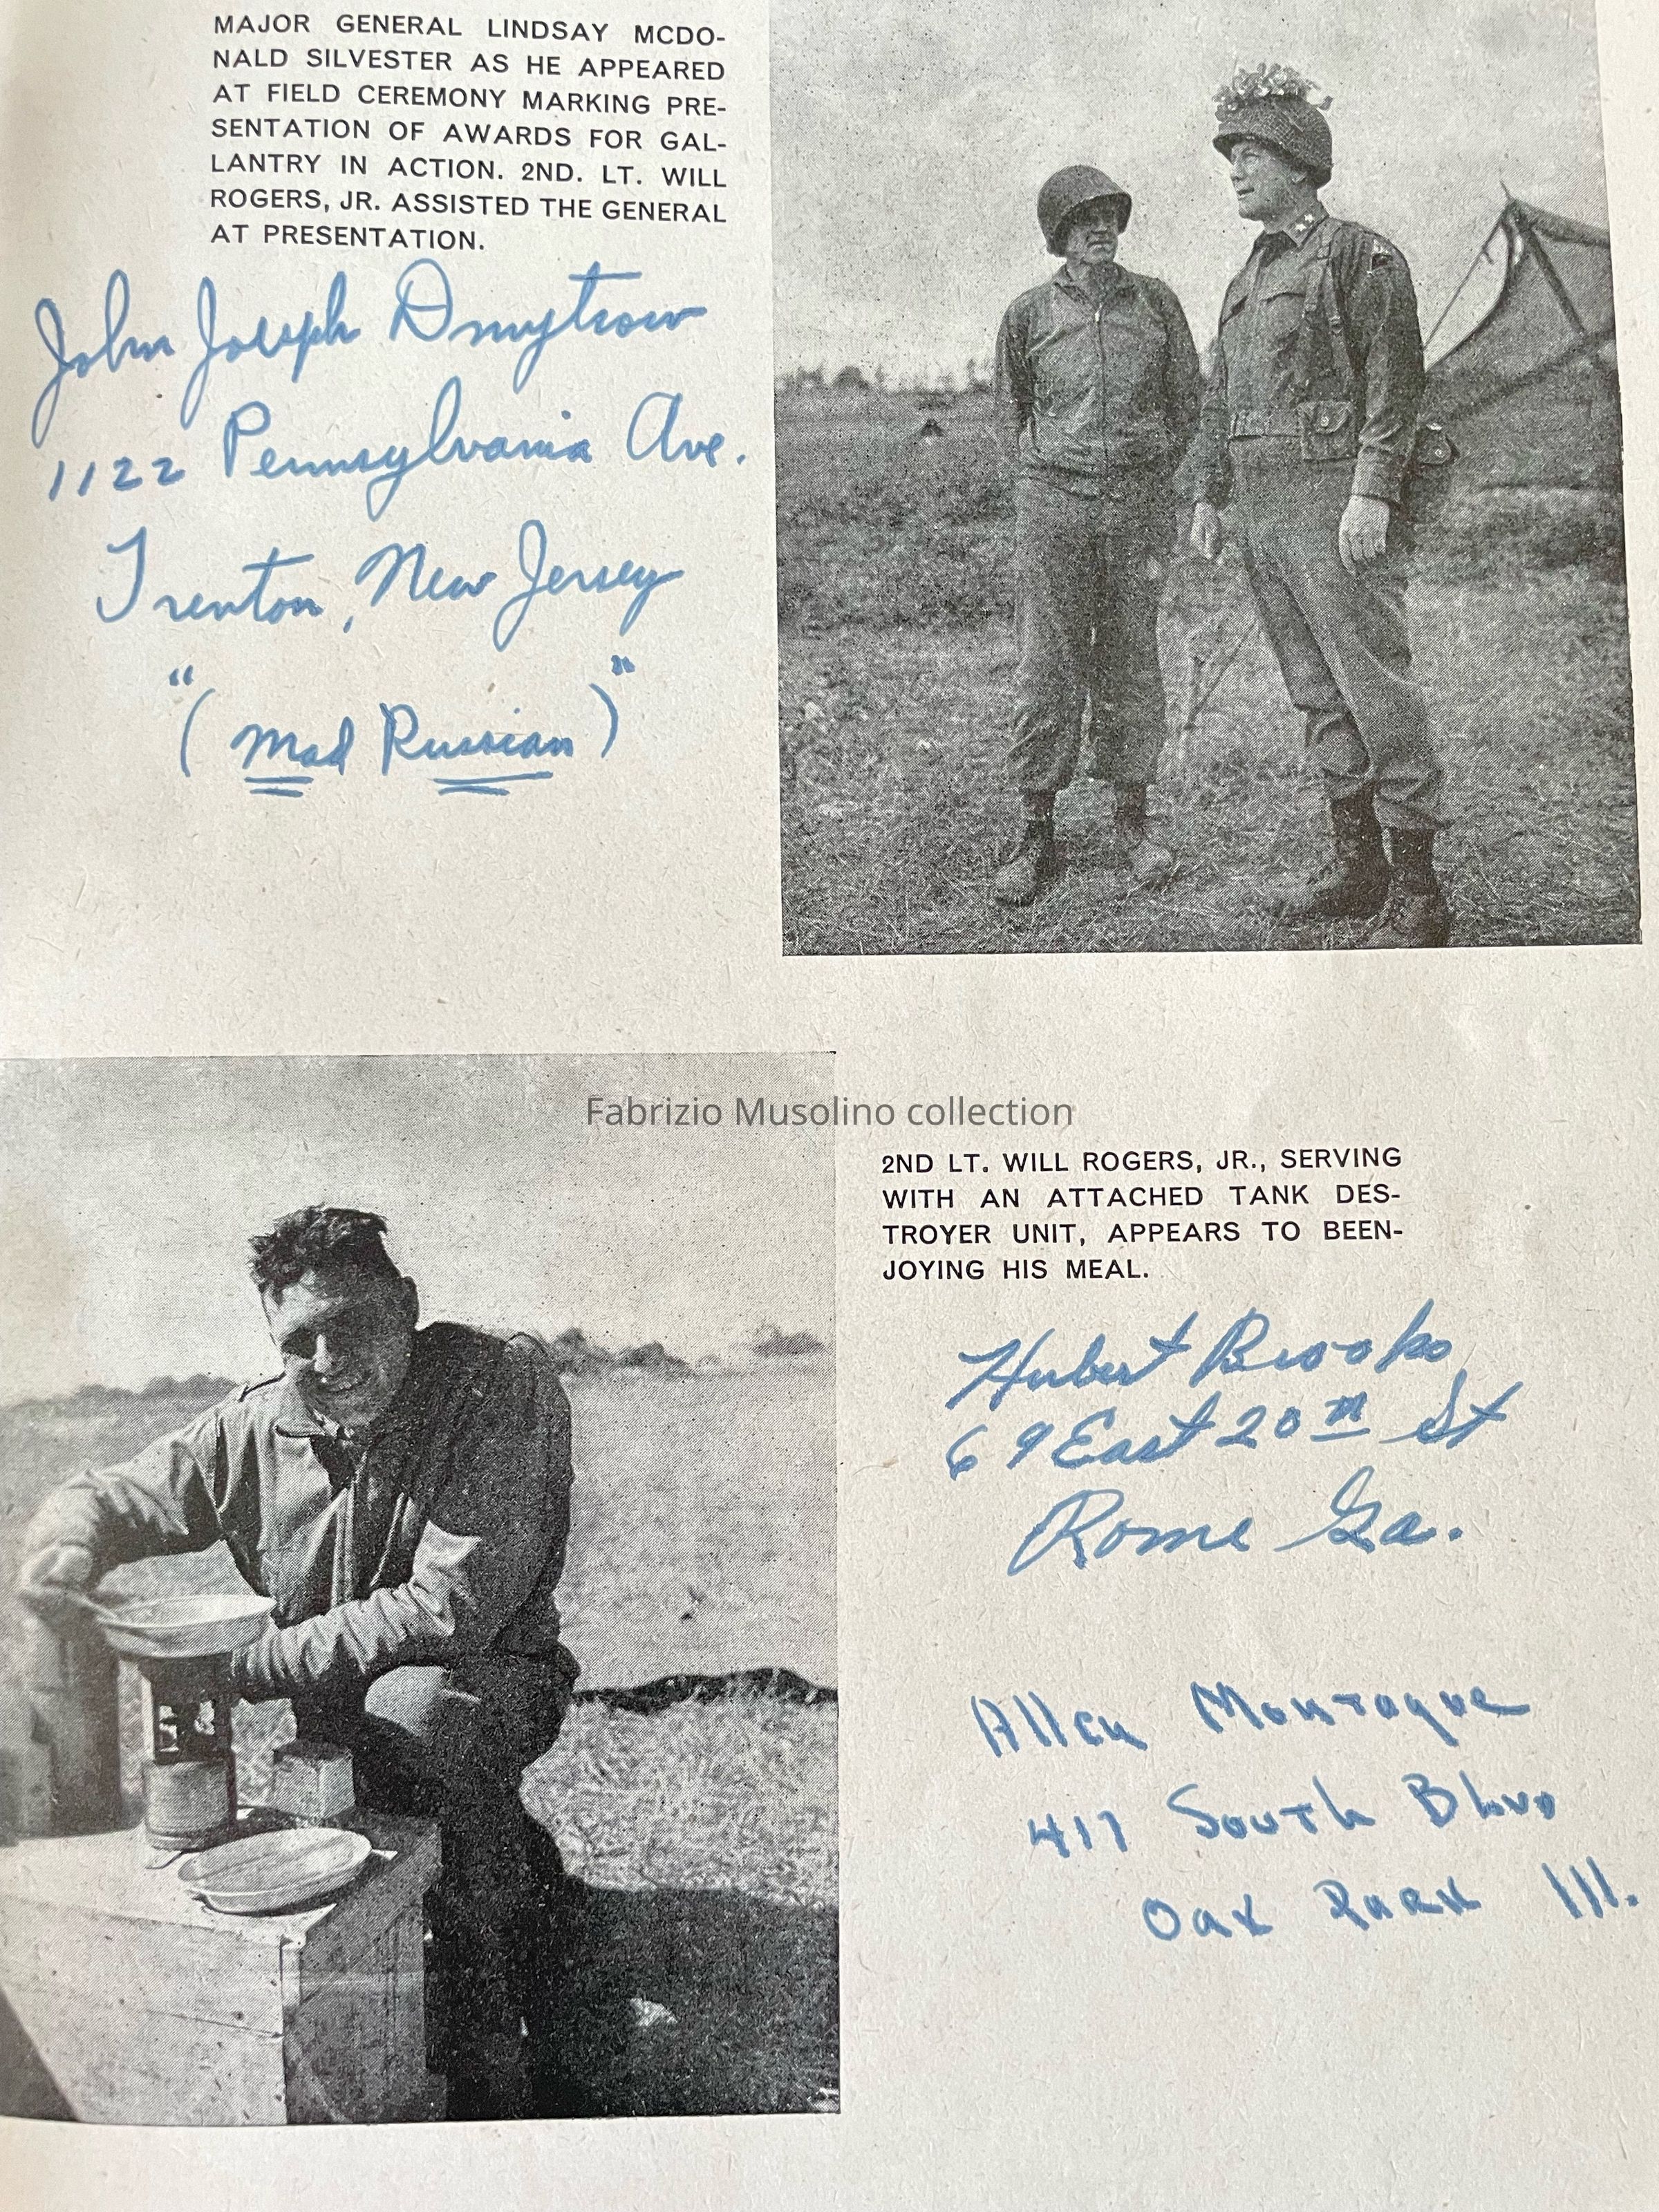 MAJOR GENERAL LINDSAY MCDO-
NALD SILVESTER AS HE APPEARED
AT FIELD CEREMONY MARKING PRE-
SENTATION OF AWARDS FOR GAL-
LANTRY IN ACTION. 2ND. LT. WILL
ROGERS, JR. ASSISTED THE GENERAL
AT PRESENTATION.
John Joseph Dmytrow
1122 Pennsylvania Ave.
Trenton, New Jersey
"(Mad Russian)"
Fabrizio Musolino collection
2ND LT. WILL ROGERS, JR., SERVING
WITH AN ATTACHED TANK DES-
TROYER UNIT, APPEARS TO BEEN-
JOYING HIS MEAL.
Hubert Brooks
69 East 20th St
Rome Ga.
Allen Montague
417 South Blvd
Oak Park Ill.